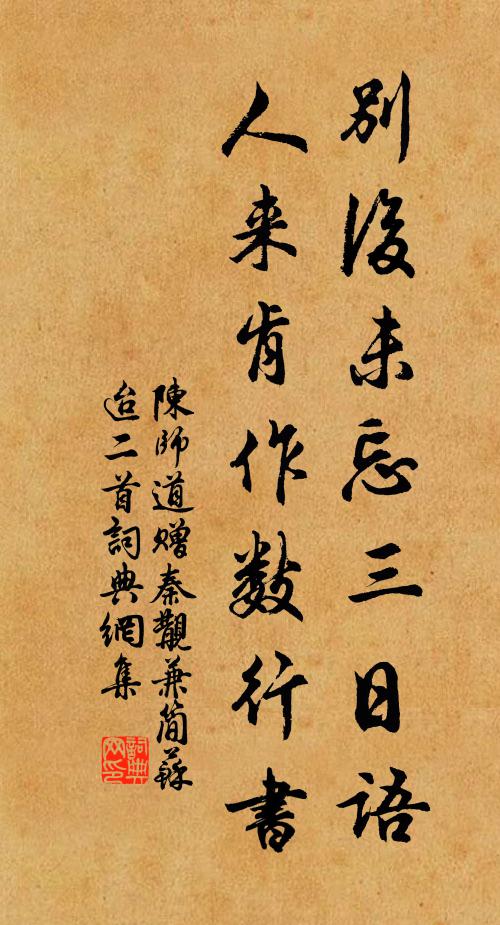 別後未忘三日語
人来肯作数行書
陳師道贈秦觀兼簡蘇
迨二首詞典網集
詞典网印